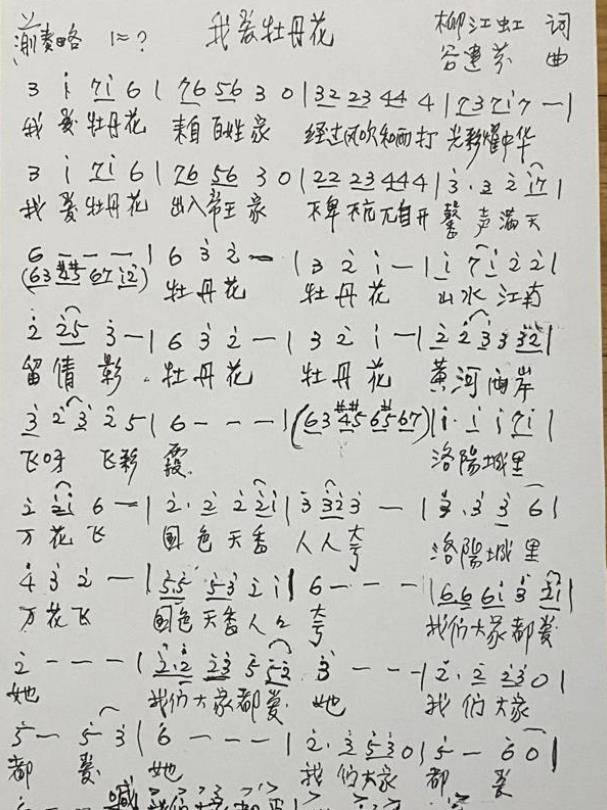 渐奏略 1=? 我爱牡丹花 柳江虹 词
谷建芬 曲
3 i 7i 6 | 76 56 3 0 | 32 23 44 4 | 7 3 7 i 7 — |
我 爱 牡丹花 来自 百姓 家 经过风吹和雨打 光彩耀中华
3 i 7i 6 | 76 56 3 0 | 22 23 44 4 | 3· 3 2 i7 |
我 爱 牡丹花 出入 帝王 家 不卑 不亢 无自开 馨 声 满 天
6 — — — | 6 3 2 — | 3 2 i — | i 7 i 2 2 |
(63 #4#5 67 i2) 牡 丹 花 牡 丹 花 山 水 江南
2 25 3 — | 6 3 2 — | 3 2 i — | 2 2 3 3 32 |
留 倩 影 牡丹花 牡 丹 花 黄河两岸
3 2 3 2 5 | 6 — — — | (63 #4#5 6#5 67) | i· i i 7i |
飞呀 飞彩 霞 洛阳城里
2 2i 6 — | 2· 2 2 2i | 3 323 — | 3· 3 3 6 |
万 花 飞 国 色 天香 人人夸 洛阳城里
4 3 2 — | 55 53 2 i | 6 — — — | 66 6i 3 2i |
万花飞 国色 天香 人人 夸 我们大家都爱
2 — — — | 2·2 23 5 52 3 — — — | 2· 2 23 0 |
她 我们大家都爱 她 我 们 大家
5 — 5 3 | 6 — — — | 2· 3 53 0 | 5 — 6 0 |
都 爱 她 我 们大家 都 爱
喊